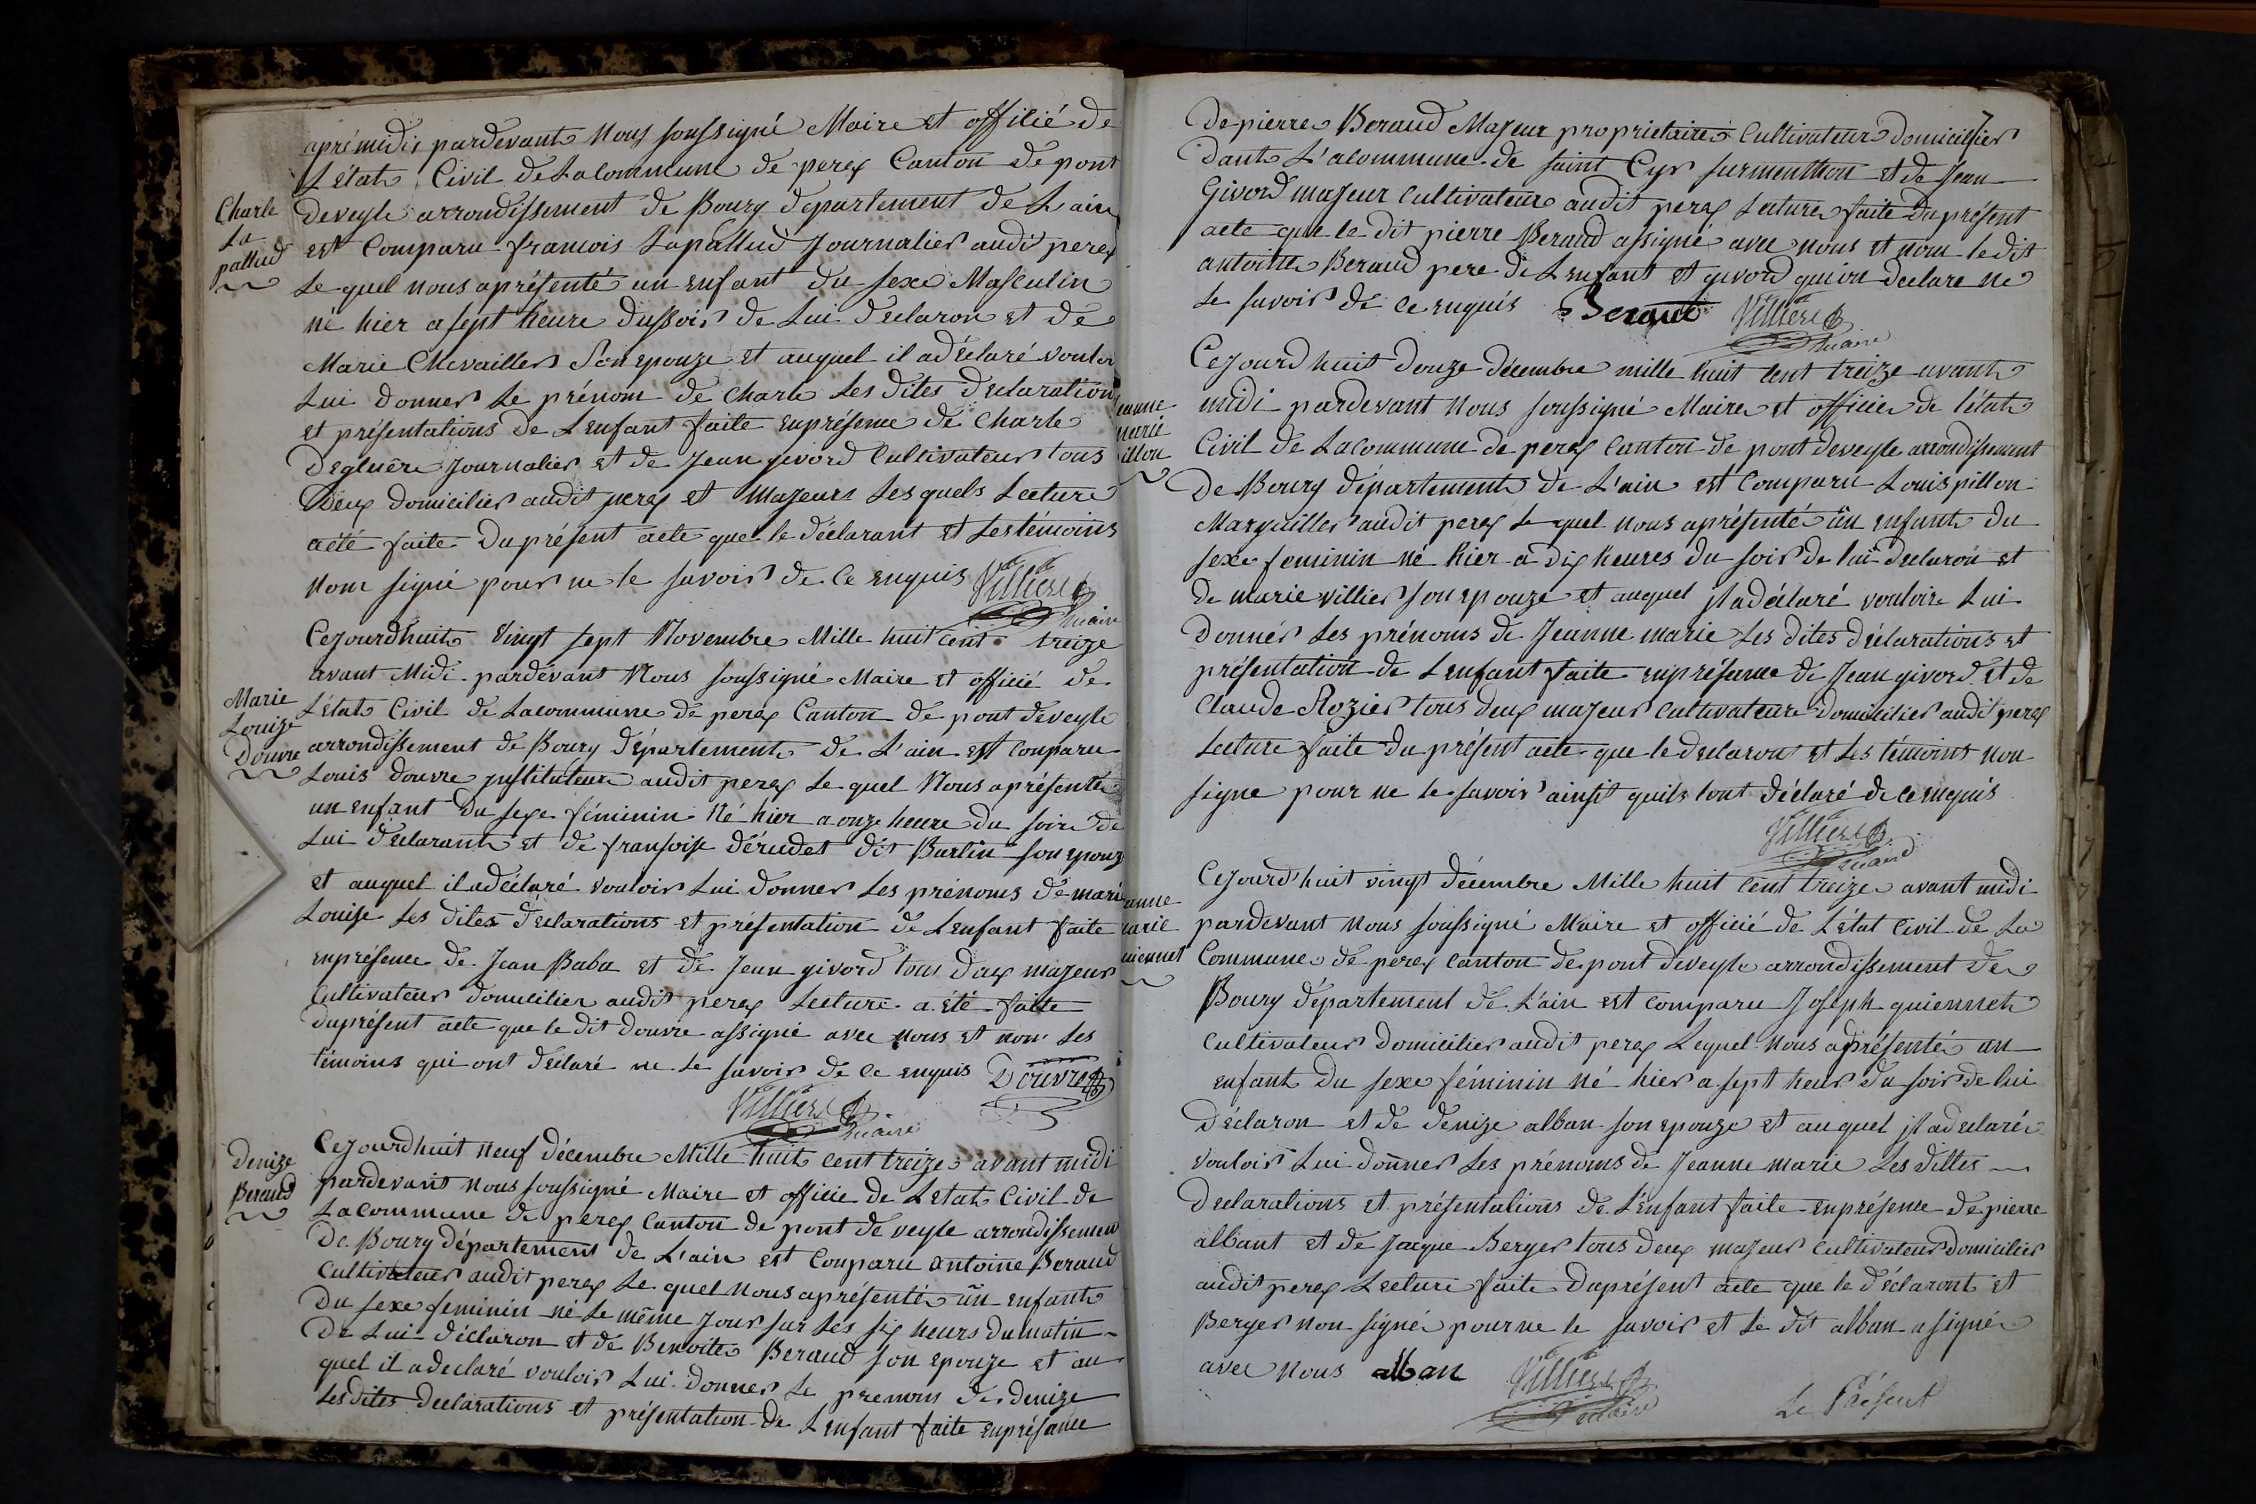 aprémidis pardevants nous soussigné Maire et offilié de
L'états Civil de Lacommune de perex Canton de pont
deveyle arrondissement de Bourg département de L'ain
est Comparu francois Lapallud Journalier audit perex
Le quel nous aprésenté un enfant du sexe Masculin
né hier a sept heure dussoir de Lui declaron et de
Marie Chevaillier Son epouze et auquel il adéclaré voulor
Lui donner Le prénom de Charle Les dites declaration
et présentations de L'enfant faite enprésence de Charle
Journalier et de Jean givord Cultivateur tous
deux domicilier audit perex et Majeurs Les quels Lecture
aété faite Duprésent acte que le déclarant et Les témoins
nom signé pour ne le savoir de Ce enquis Villiers
maire
Charle
La
pallud
Cejourdhuit vingt sept Novembre Mille huit cent treize
avant Midi pardevant Nous soussigné Maire et officié de
L'états Civil de Lacommune de perex Canton de pont deveyle
arrondissement de Bourg départements de L'ain est comparu
Louis douvre justituteur audit perex Le quel Nous aprésenté
un enfant du sexe féminin Né hier a onze heure du soire de
Lui déclarant et de fransoise dérudet dit Burlin son epouz
et auquel il adéclaré vouloir Lui donner Les prénoms de mari
Louise Les dites déclarations et présentation de L'enfant faite
enprésence de Jean Baba et de Jean givord tous deux majeur
Cultivateur domicilier audit perex Lecture a été faite
duprésent acte que le dit douvre assigné avec nous et nom Les
témoins qui ont déclaré ne Le savoir de Ce enquis Douvre
Villiers
maire
Marie
Louize
Douvre
Cejourdhuit neuf décembre Mille huit cent treize avant midi
pardevant nous soussigné Maire et officie de L'état Civil de
Lacommune de perex Canton de pont de veyle arrondissemen
De Bourg département de L'ain est Comparu antoine Beraud
Cultivateur audit perex Le quel nous aprésenté un enfant
Du sexe feminin né Le même Jour sur Les six heurs du matin
De Lui déclaron et de Benoite Beraud son epouze et au
quel il adeclaré vouloir Lui donner Le prenom de denize
Lesdites declarations et présentation de L'enfant faite enprésance
Denize
Beraud
7
De pierre Beraud Majeur proprietaire Cultivateur domicillier
Dants L'acommune de saint Cyr surmenthon et de Jean
Givord majeur Cultivateur audit perex Lecture faite du présent
acte que le dit pierre Beraud assigné avec nous et nom le dit
antoine Beraud pere de L'enfant et givord quion declare ne
Le savoir de Ce enquis Beraud Villiers
maire
Cejourd'huit douze décembre mille huit cent treize avant
midi pardevant nous soussigné Maire et officier de l'état
Civil de Lacommune de perex canton de pont deveyle arrondissement
De Bourg départements de L'ain est Comparu Louis pillon
Marguiller audit perex Le quel nous aprésenté un enfant du
sexe feminin né hier a dix heures du soir de lui declaron et
de marie villier son epouze et auquel jl adéclaré vouloire Lui
Donner Les prénoms de Jeanne marie Les dites déclarations et
présentation de L'enfant faite enprésance de Jean givord et de
Claude Rozier tous deux majeur Cultivateure domicilier audit perex
Lecture faite du présent acte que le declaron et Les témoins non
signe pour ne le savoir ainsit quils lont déclaré de ce enquis
Villiers
maire
eanne
marie
illon
Cejourd'huit vingt décembre Mille huit cent treize avant midi
pardevant nous soussigné Maire et officié de L'état Civil de La
Commune de perex canton de pont deveyle arrondissement de
Bourg département de L'ain est comparu Joseph guiennet
Cultivateur domicilier audit perex Lequel nous aprésenté un
enfant du sexe féminin né hier a sept heur du soir de lui
déclaron et de denize alban son epouze et auquel jl adeclaré
vouloir Lui donner Les prénoms de Jeanne marie Les dittes
declarations et présentations de L'enfant faite enprésence de pierre
albant et de Jacque Berger tous deux majeur cultivateur domicilier
audit perex Lecture faite duprésent acte que le déclaront et
Berger non signé pour ne le savoir et Le dit alban a signé
avec nous alban Villiers
maire
anne
marie
uiennet
Le Présent